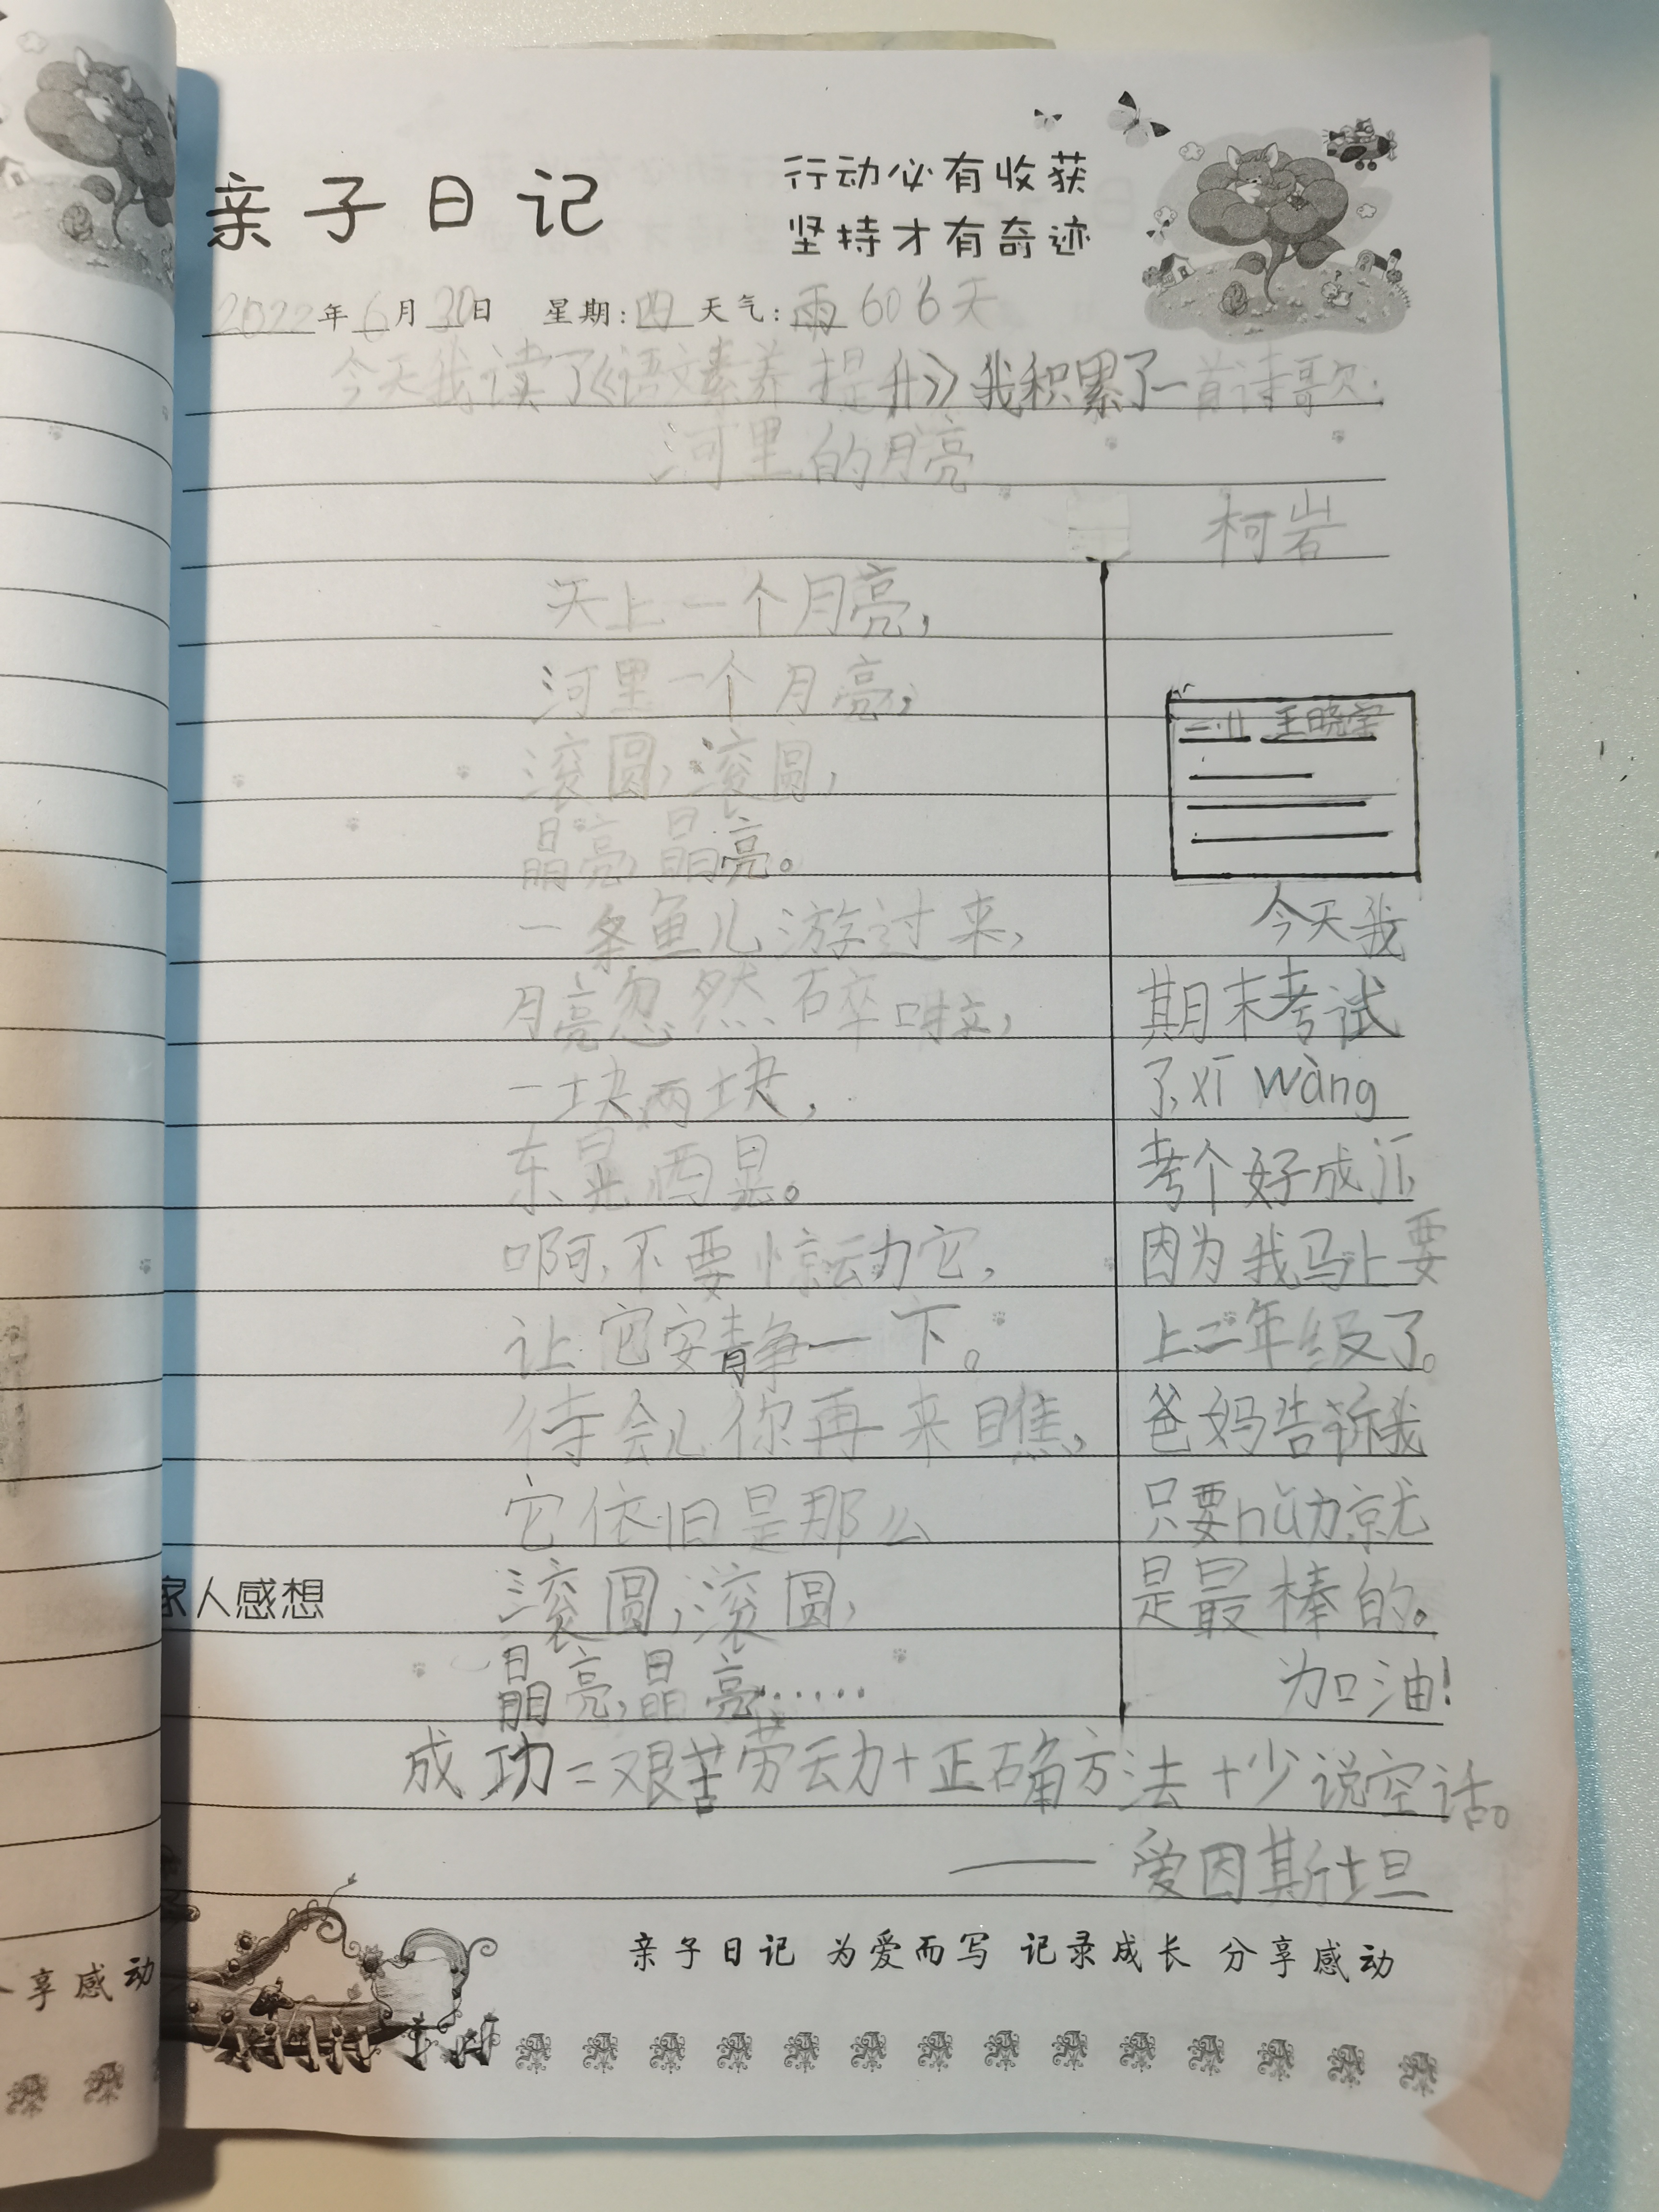 亲子日记
行动必有收获
坚持才有奇迹
2022年6月30日 星期:四 天气:雨 606天
今天我读了《语文素养提升》我积累了一首诗歌:
河里的月亮
柯岩
天上一个月亮,
河里一个月亮,
滚圆,滚圆,
晶亮,晶亮。
一条鱼儿游过来,
月亮忽然碎啦,
一块两块,
东晃西晃。
啊,不要惊动它,
让它安静一下。
待会儿你再来瞧,
它依旧是那么
滚圆,滚圆,
晶亮,晶亮……
王晓宝
今天我
期末考试
了,xī wàng
考个好成jì,
因为我马上要
上二年级了。
爸妈告诉我
只要nǔ力就
是最棒的。
加油!
家人感想
成功=艰苦劳动+正确方法+少说空话。
——爱因斯坦
亲子日记 为爱而写 记录成长 分享感动
享感动